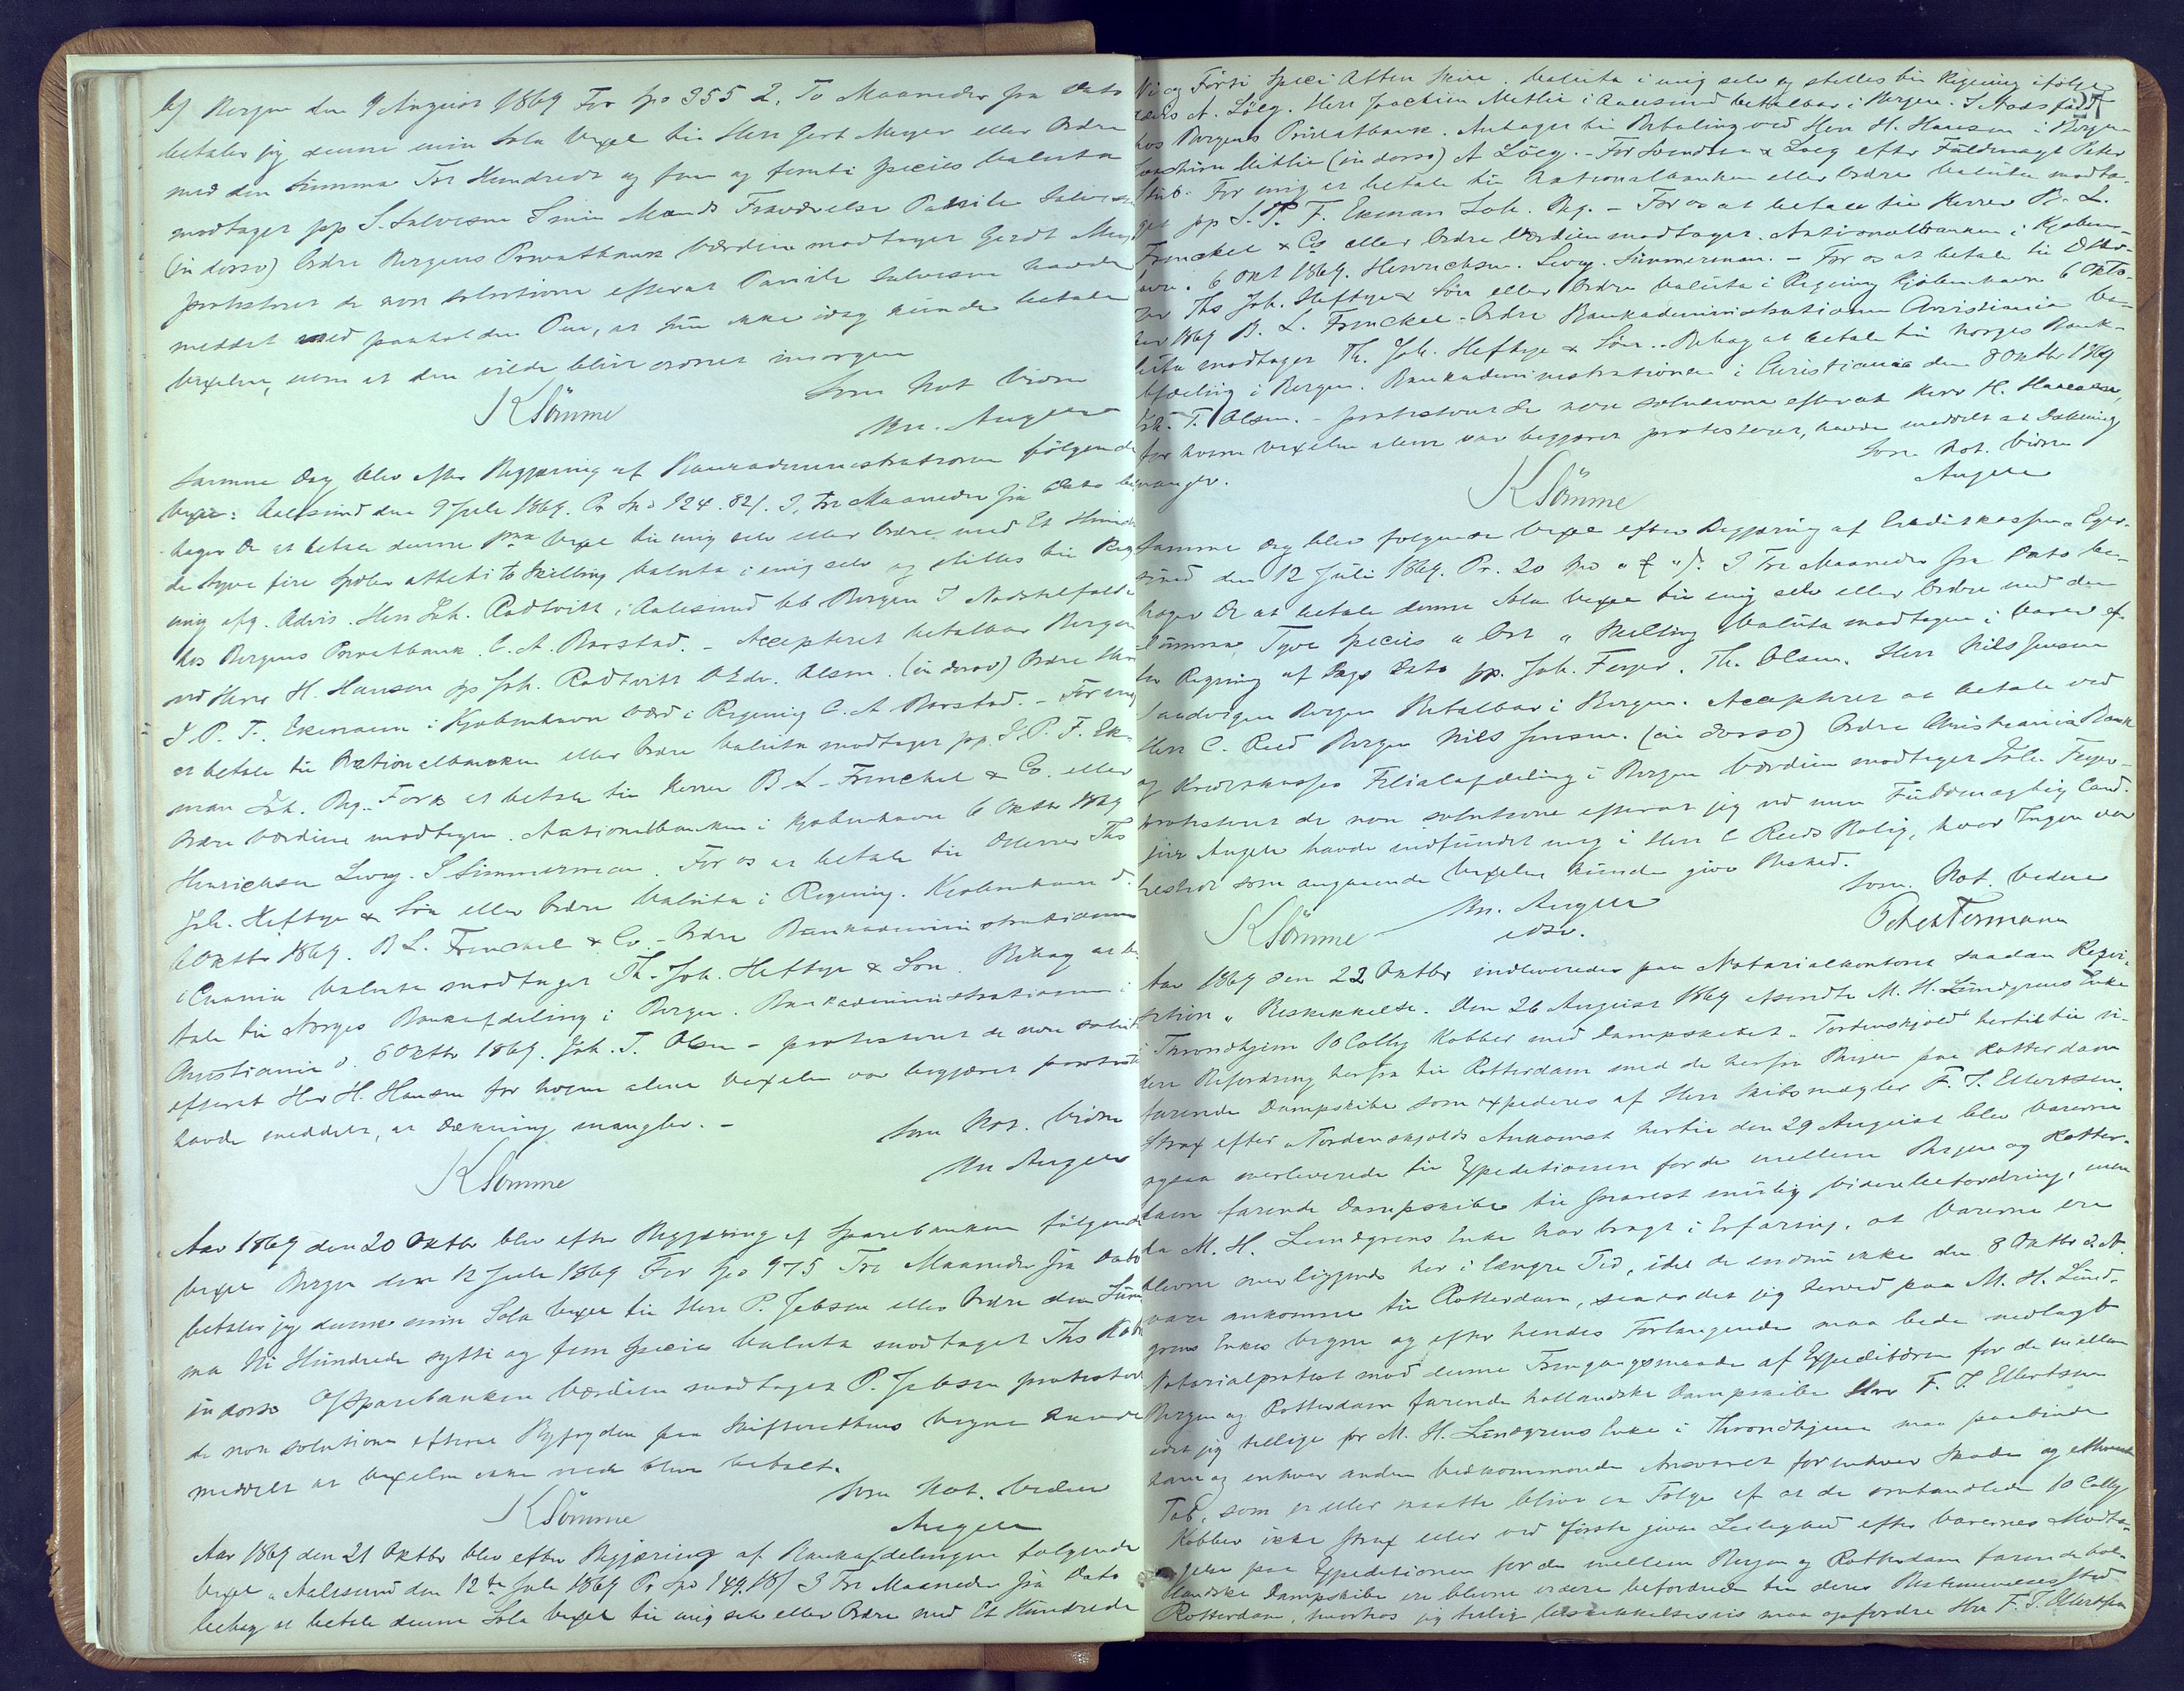 b) Bergen den 9 August 1869 For Spd 355 2. To Maaneder fra Dato
betaler jeg denne min Sola Vexel til Herr Gert Meyer eller Ordre
med den Summa Tre Hundrede og fem og femti Species Valuta
modtaget pp S. Salvesen I min Mands Fraværelse Salvesen
(in dorso) Ordre Bergens Privatbank Værdien modtaget Gerdt Meyer
protesteret de non solutione efterat Salvesen havde
meddelt med paaholden Pen, at hun ikke idag kunde betale
Vexelen, men at den vilde blive ordnet imorgen
Som Not. Vidne
K Sömme
Mn. Angell
Samme Dag blev efter Begjæring af Bankadministrationen følgende
Vexel: Aalesund den 9 Juli 1869. Pr Spd 124. 82/. I, Tre Maaneder fra Dato be
hager De at betale denne pma Vexel til mig selv eller Ordre med Et Hundre
de tyve fire Spdlr otteti to Skilling Valuta i mig selv og stilles til Reg
ning efg. Advis. Herr Joh. Rødtvitt i Aalesund bb Bergen I Nødstilfælde
hos Bergens Privatbank. C. A. Borstad. - Accepteret betalbar Bergen
ved Herr H. Hansen pp Joh. Rødtvitt O Edv. Olsen. (in dorso) Ordre Herr
I. P. T. Ekmann i Kjøbenhavn Værd i Regning C. A Borstad. - For mig
at betale til Nationalbanken eller Ordre Valuta modtaget pp. I. P. F. Ek-
man Joh. Bg. For os at betale til Herrer B. L. Frenckel & Co. eller
Ordre Værdien modtagen. Nationalbanken i Kjøbenhavn 6 Oktbr 1869
Henrichsen Levy. S Simmermann. For os at betale til D'Herrer Ths
Joh. Heftye & Søn eller Ordre Valuta i Regning. Kjøbenhavn d.
6 Oktbr 1869. B L. Frenckel & Co. - Ordre Bankadministrationen
i Chrania Valuta modtaget Th. Joh. Heftye & Søn. Behag at be
tale til Norges Bankafdeling i Bergen. Bankadministrationen i
Christiania d. 8 Oktbr 1869. Joh. T. Olsen - protesteret de non soluti
efterat Herr H. Hansen for hvem alene Vexelen var begjæret protesteret
havde meddelt, at Dækning mangler. -
Som Not. Vidne
K Sömme
Mn Angell
Aar 1869 den 20 Oktbr blev efter Begjæring af Sparebanken følgende
Vexel Bergen den 12 Juli 1869 For Spd 975 Tre Maaneder fra Dato
betaler jeg denne min Sola Vexel til Herr P. Jebsen eller Ordre den Sum
ma Ni Hundrede sytti og fem Species Valuta modtaget Ths
in dorso Sparebanken Værdien modtaget P. Jebsen protesteret
de non solutione efterat Byfogden paa Skifterettens Vegne havde
meddelt at Vexelen ikke vilde blive betalt.
Som Not. Vidne
K Sömme
Angell
Aar 1869 den 21 Oktbr blev efter Begjæring af Bankafdelingen følgende
Vexel " Aalesund den 12te Juli 1869 Pr Spd 149.18/ I Tre Maaneder fra Dato
behag at betale denne Sola Vexel til mig selv eller Ordre med Et Hundrede
27
Ni og Förti Speci Atten Skill. Valuta i mig selv og stilles til Regning ifølge
A. Löeg. Herr Joachim Methie i Aalesund betalbar i Bergen. I Nødsfald
hos Bergens Privatbank. Antages til Betaling ved Herr H. Hansen i Bergen
Joachim Methie (in dorso) A Löeg. - For Svendsen & Loeg efter Fuldmagt Peter
Stub. For mig at betale til Nationalbanken eller Ordre Valuta modta-
get pp I. P. F. Ekman Joh. Bg. - For os at betale til Herrer B. L.
Frenckel & Co eller Ordre Værdien modtaget. Nationalbanken i Kjøben-
havn. 6 Okt 1869. Henrichsen. Levy. Simmerman. - For os at betale til D'Her-
rer Ths Joh. Heftye & Søn eller Ordre Valuta i Regning Kjøbenhavn 6 Okto-
ber 1869 B. L. Frenckel - Ordre Bankadministrationen Christiania Va-
luta modtaget Th. Joh. Heftye & Søn. - Behag at betale til Norges Bank-
afdeling i Bergen. Bankadministrationen i Christiania den 8 Oktbr 1869
Joh. T. Olsen. - protesteret de non solutione efterat Herr H. Hansen,
for hvem Vexelen alene var begjæret protesteret, havde meddelt at Dækning
mangler.
Som Not. Vidne
K Sömme
Angell
Samme Dag blev følgende Vexel efter Begjæring af Creditkassen " Eger-
sund den 12 Juli 1869. Pr. 20 Spd " ƒ " /. I Tre Maaneder fra Dato be-
hager De at betale denne Sola Vexel til mig selv eller Ordre med den
Summa Tyve Species " Ort " Skilling Valuta modtagen i Varer ef-
ter Regning af Dags Dato pp. Joh. Feyer. Th. Olsen. Herr Nils Jensen
Sandvigen Bergen Betalbar i Bergen. Accepteret at betale ved
Herr C. Reed Bergen Nils Jensen. (in dorso) Ordre Christiania Bank
og Kreditkasses Filialafdeling i Bergen Værdien modtaget Joh. Feyer -
protesteret de non solutione efterat jeg ved min Fuldmægtig Cand.
jur Angell havde indfundet mig i Herr C Reeds Bolig, hvor Ingen var
tilstede som angaaende Vexelen kunde give Besked.
Som. Not. Vidne
K Sömme
Mn. Angell
edsv.
Aar 1869 den 22 Oktbr indleveredes paa Notarialkontoret saadan Reqvi-
sition " Beskikkelse. Den 26 August 1869 afsendte M. H. Lundgrens Enke
i Throndhjem 10 Colly Kobber med Dampskibet " Tordenskjold hertil til vi-
dere Befordring herfra til Rotterdam med de herfra Bergen paa Rotterdam
farende Dampskibe som expederes af Herr Skibsmægler F. T. Ellertsen.
Strax efter " Tordenskjolds Ankomst hertil den 29 August blev Varerne
ogsaa overleverede til Expeditionen for de mellem Bergen og Rotter-
dam farende Dampskibe til snarest mulig Viderebefordring, men
da M. H. Lundgrens Enke har bragt i Erfaring, at Varerne ere
blevne overliggende her i længre Tid, idet de endnu ikke den 8 Oktbr d. A.
vare ankomne til Rotterdam, saa er det jeg herved paa M. H. Lund-
grens Enkes Vegne og efter hendes Forlangende maa bede nedlagt
Notarialprotest mod denne Fremgangsmaade af Expeditøren for de mellem
Bergen og Rotterdam farende hollandske Dampskibe Herr F. T. Ellertsen
idet jeg tillige for M. H. Lundgrens Enke i Throndhjem maa paabinde
ham og enhver anden Vedkommende Ansvaret for enhver Skade og ethvert
Tab, som er eller maatte blive en Følge af at de omhandlede 10 Colly
Kobber ikke strax eller ved første givne Leilighed efter Varernes Modta-
gelse paa Expeditionen for de mellem Bergen og Rotterdam farende hol-
landske Dampskibe ere blevne videre befordrede til deres Bestemmelsessted
Rotterdam, hvorhos jeg tillige beskikkelsesvis maa opfordre Herr F. T. Ellertsen